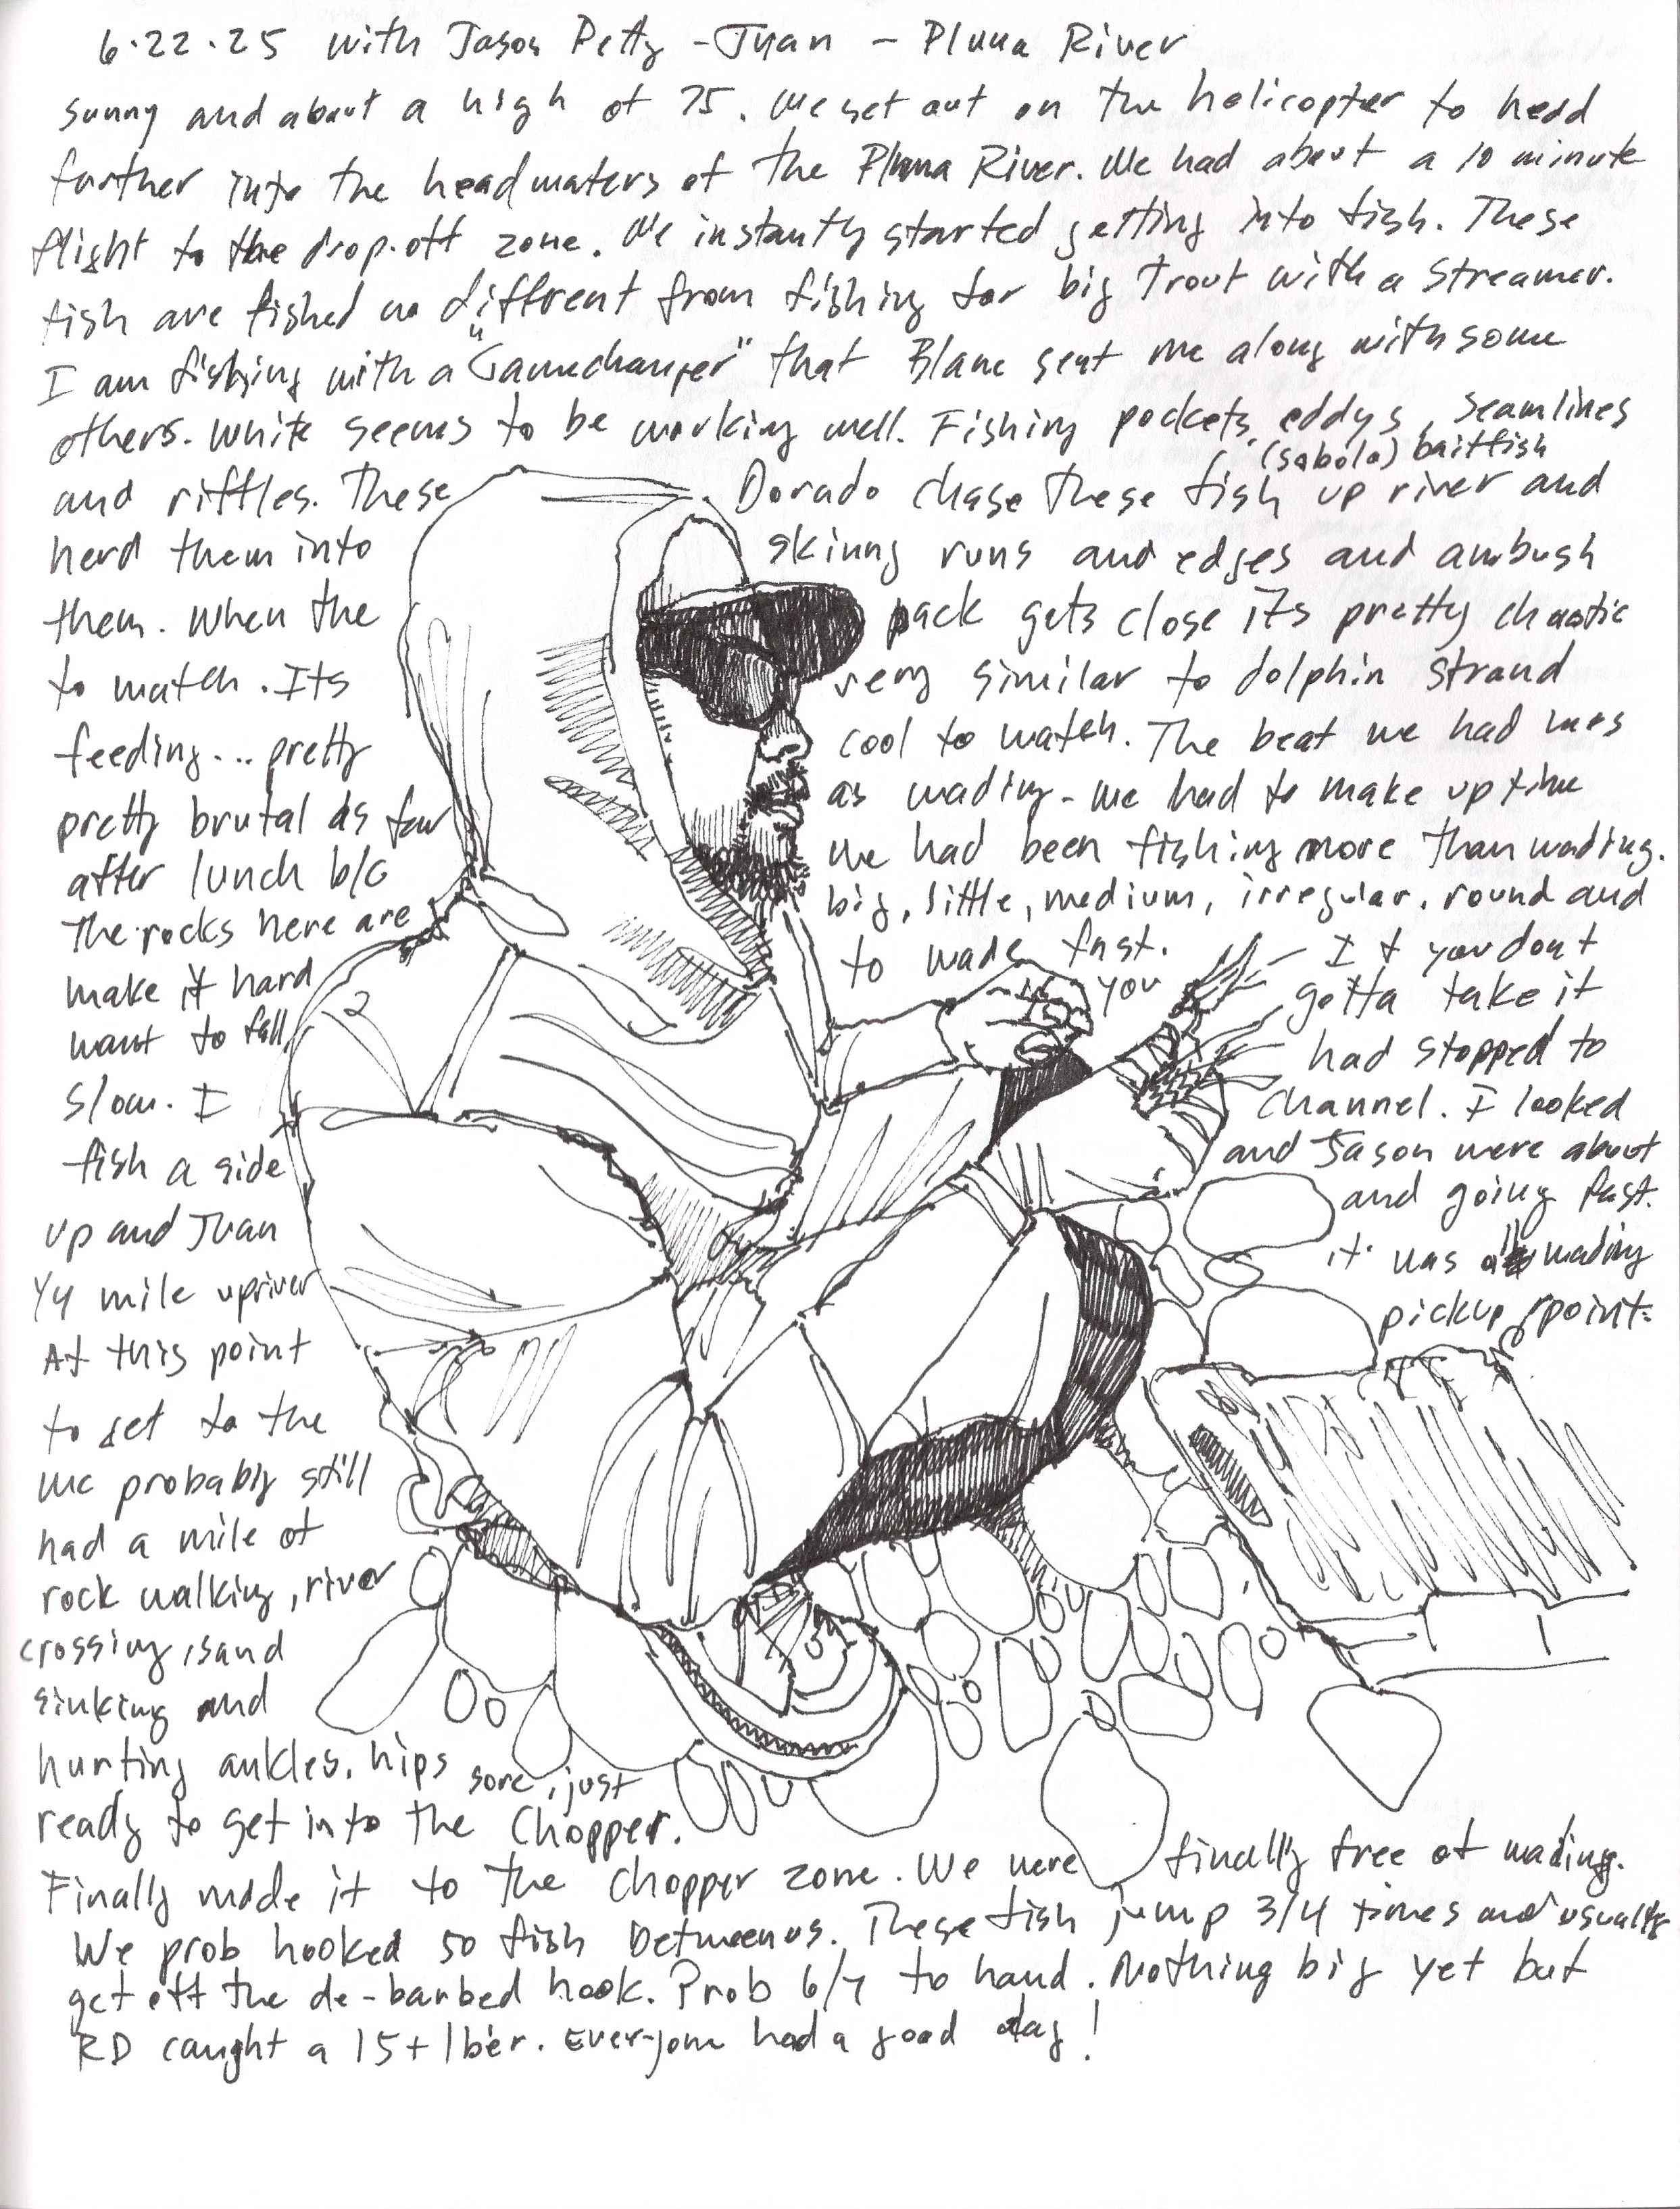 6.22.25 with Jason Petty - Juan - Pluma River
Sunny and about a high of 75. We set out on the helicopter to head
further into the headwaters of the Pluma River. We had about a 10 minute
flight to the drop-off zone. We instantly started getting into fish. These
fish are fished no different from fishing for big Trout with a Streamer.
I am fishing with a "Gamechanger" that Blane sent me along with some
others. White seems to be working well. Fishing pockets, eddys, seamlines
(sabolo) baitfish
and riffles. These Dorado chase these fish up river and
herd them into skinny runs and edges and ambush
them. When the pack gets close its pretty chaotic
to watch. Its very similar to dolphin strand
feeding... pretty cool to watch. The beat we had was
pretty brutal as far as wading - we had to make up time
after lunch b/c we had been fishing more than wading.
The rocks here are big, little, medium, irregular, round and
make it hard to wade fast. If you don't
want to fall, you gotta take it
slow. I had stopped to
fish a side channel. I looked
up and Juan and Jason were about
1/4 mile upriver and going fast.
At this point it was all wading
to get to the pickup point.
We probably still
had a mile of
rock walking, river
crossing, sand
sinking and
hurting ankles, hips sore, just
ready to get into the Chopper.
Finally made it to the chopper zone. We were finally free of wading.
We prob hooked 50 fish between us. These fish jump 3/4 times and usually
get off the de-barbed hook. Prob 6/7 to hand. Nothing big yet but
RD caught a 15+ lb'er. Everyone had a good day!